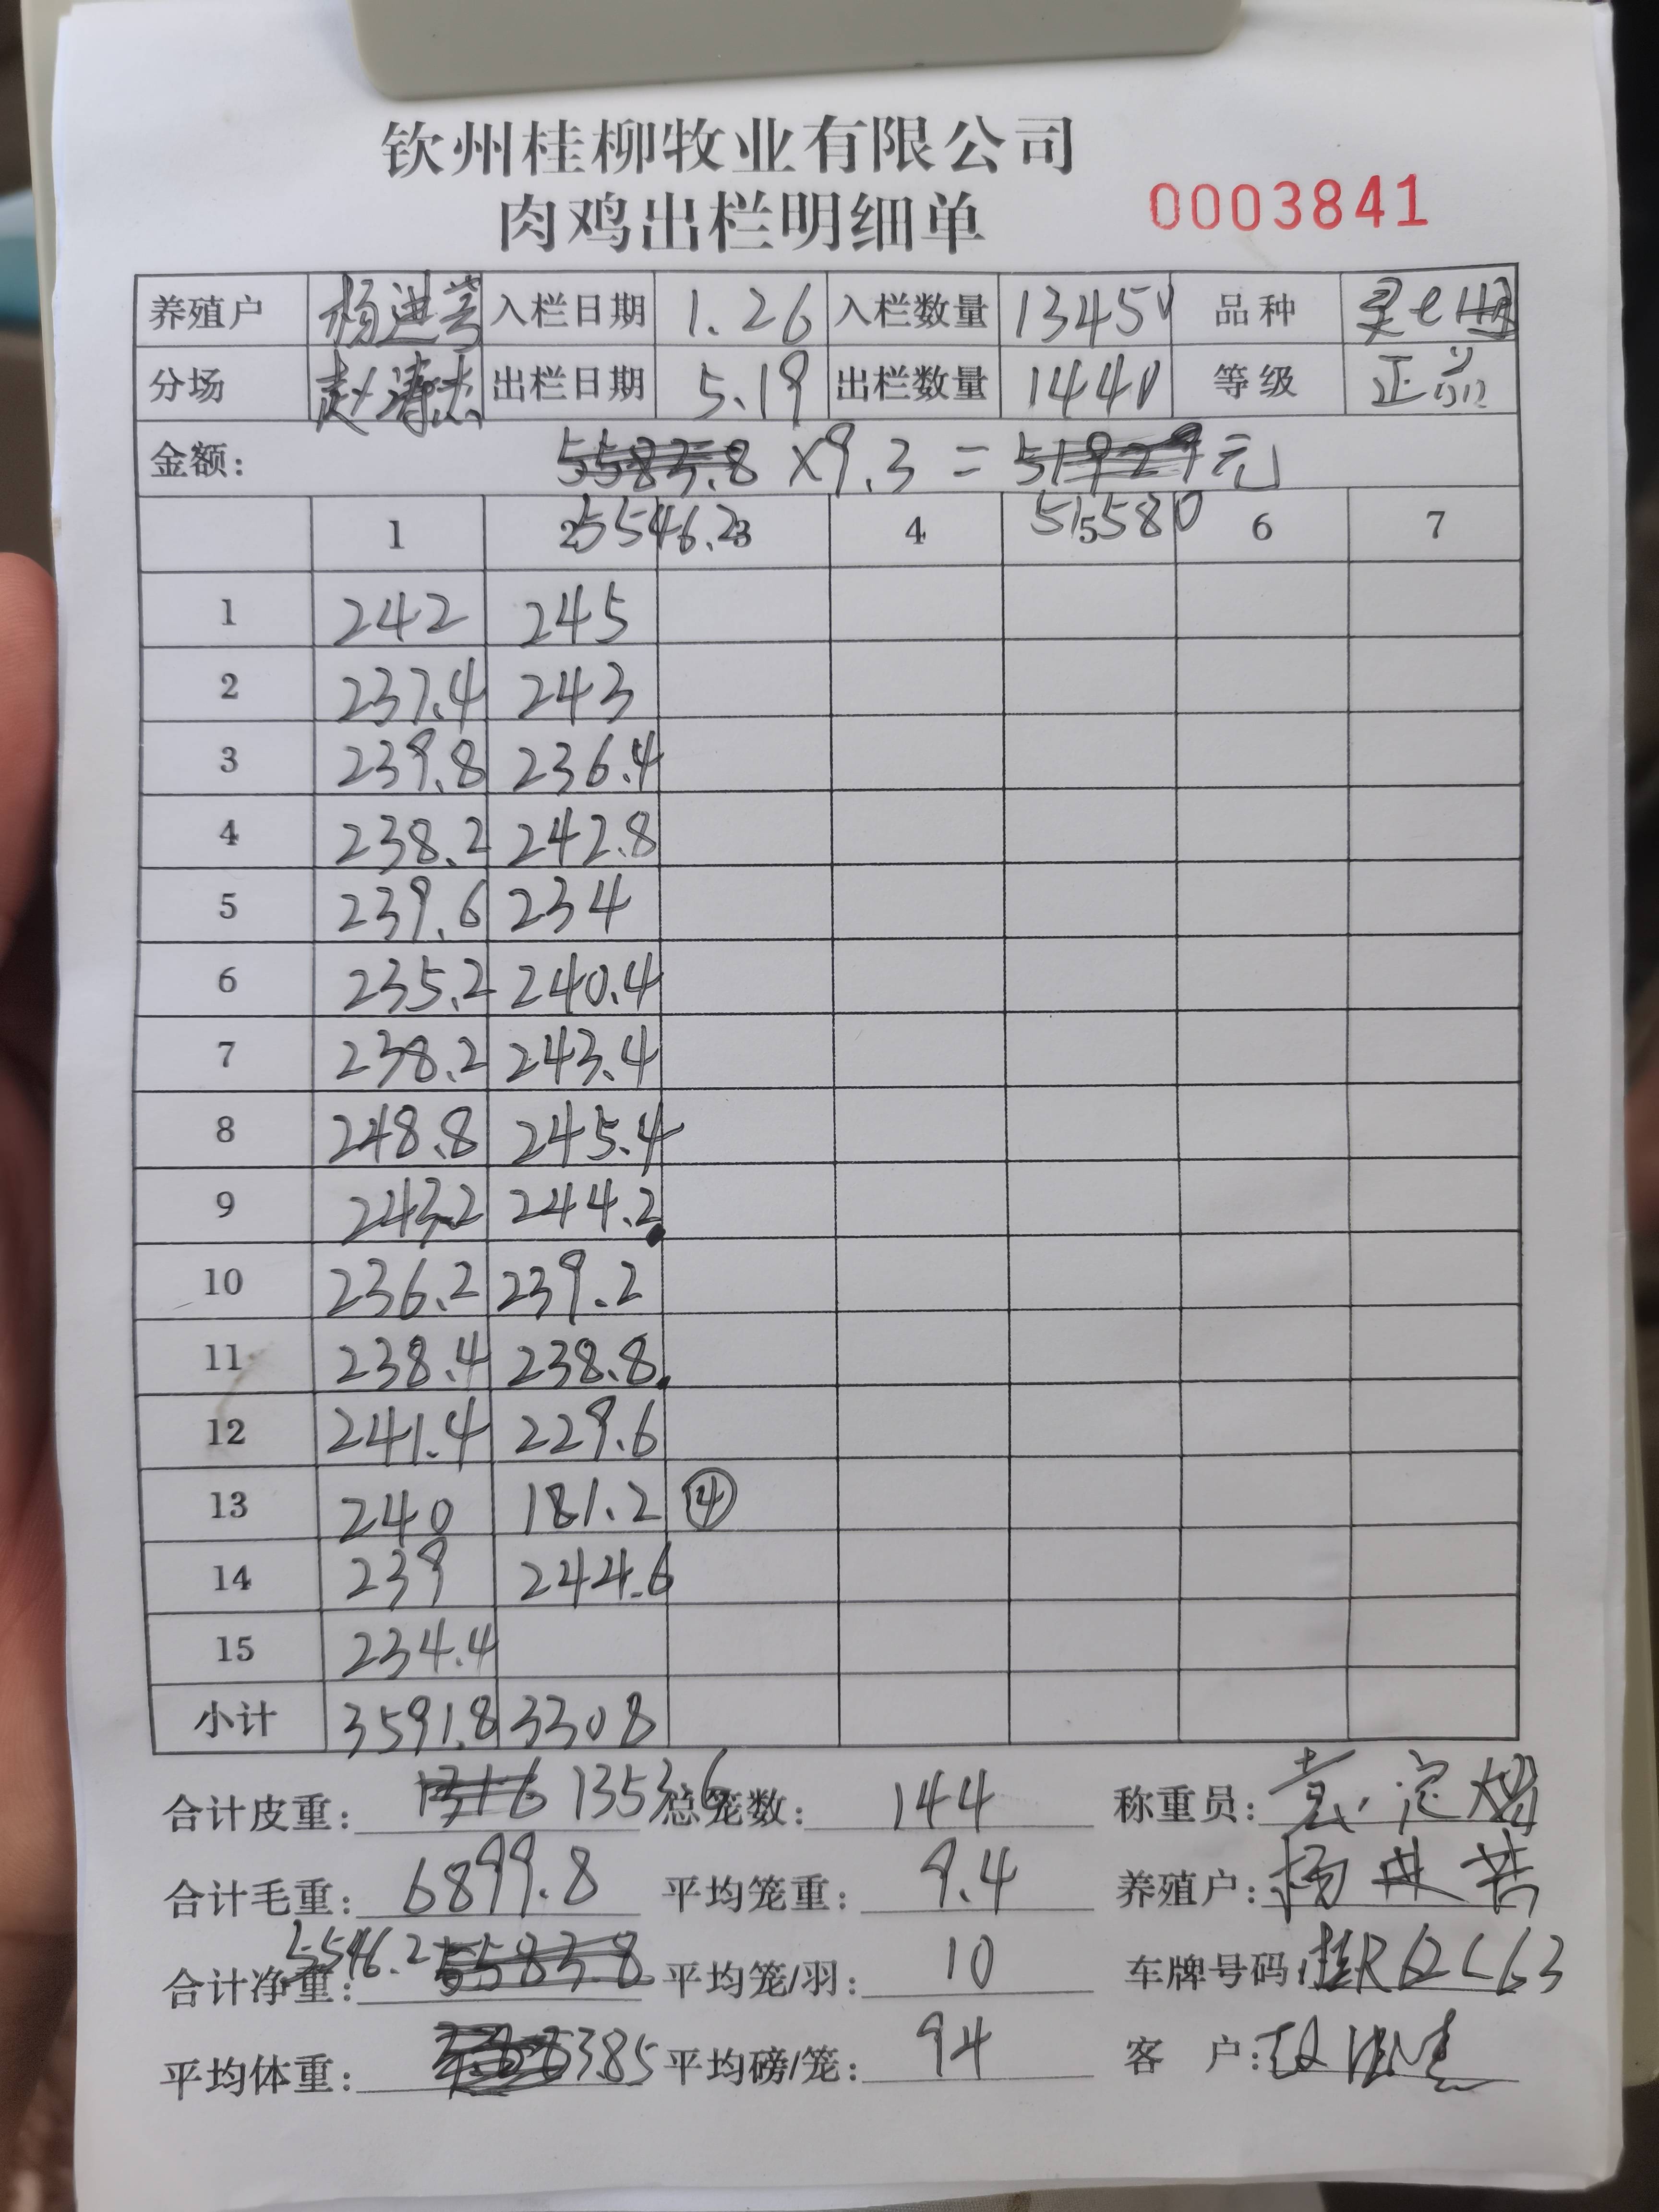 钦州桂柳牧业有限公司
肉鸡出栏明细单 0003841
养殖户 杨进营 入栏日期 1.26 入栏数量 13450 品种
分场 赵涛杰 出栏日期 5.19 出栏数量 1440 等级 正品
金额: 5583.8 ×9.3 = 51929元
5546.2 51580
1 2 3 4 5 6 7
1 242 245
2 237.4 243
3 239.8 236.4
4 238.2 242.8
5 239.6 234
6 235.2 240.4
7 238.2 243.4
8 248.8 245.4
9 243.2 244.2
10 236.2 239.2
11 238.4 238.8
12 241.4 229.6
13 240 181.2 ④
14 239 244.6
15 234.4
小计 3591.8 3308
合计皮重: 1316 1353.6 总笼数: 144 称重员:
合计毛重: 6899.8 平均笼重: 9.4 养殖户: 杨进营
合计净重: 5546.2 5583.8 平均笼/羽: 10 车牌号码:
平均体重: 3.85 平均磅/笼: 94 客户: